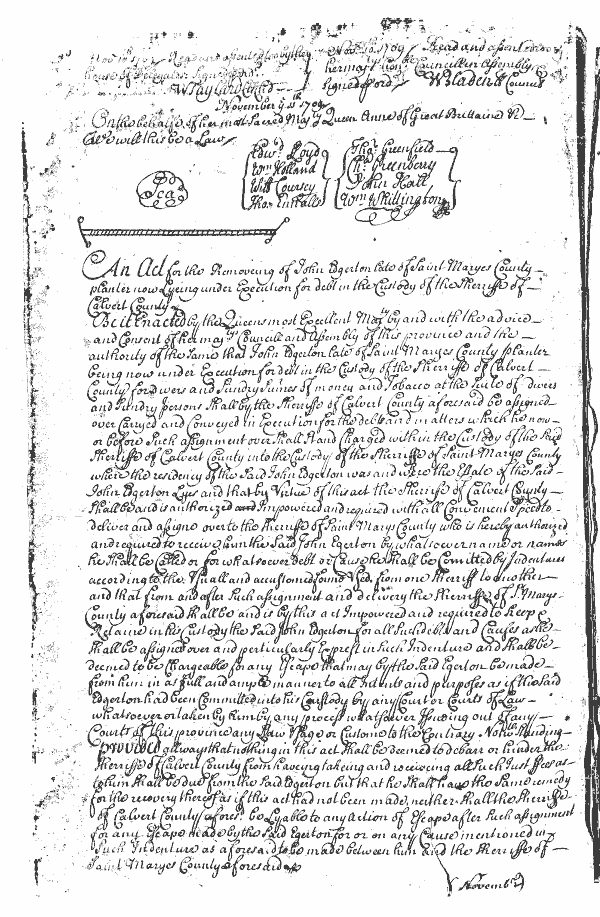 Nov. 10. 1709 Read and assented to by the
house of Delegates Signed p ord.
W Taylard
Nov. 10. 1709 Read and assented to
her maj. hon. Councill in Assembly
Signed p ord.
W Bladen Cl Council
November ye 11th 1709
On the behalfe of her most Sacred Maj.ty Queen Anne of Great Brittaine &c
I will this be a Law
Edwd Lloyd
Wm Holland
Will Coursey
Thos Ennalls
Thos Greenfield
Chs Greenberry
John Hall
Wm Whillington
Seal
An Act for the Removeing of John Edgerton late of Saint Maryes County
planter now Lyeing under Execution for debt in the Custody of the Sherriffe of
Calvert County
Be it Enacted by the Queens most Excellent Maj.ty by and with the advice
and Consent of her maj.tys Councill and Assembly of this province and the
authority of the same that John Edgerton late of Saint Maryes County planter
being now under Execution for debt in the Custody of the Sherriffe of Calvert
County for divers and Sundry Sumes of money and Tobacco at the Suite of divers
and Sundry persons Shall by the Sherriffe of Calvert County aforesaid be assigned
over Carryed and Conveyed in Execution for the debts and matters which he now
or before Such assignment over Shall Stand Charged with in the Custody of the said
Sherriffe of Calvert County into the Custody of the Sherriffe of Saint Maryes County
where the residency of the Said John Edgerton was and where the Estate of the Said
John Edgerton Lyes and that by Virtue of this act the Sherriffe of Calvert County
Shall be and is authorized and Impowered and required with all Convenient Speed to
deliver and assigne over to the Sherriffe of Saint Marys County who is hereby authorized
and required to receive him the Said John Egerton by whatsoever name or names
he Shall be Called or for whatsoever debt or Cause he Shall be Comitted by Indentures
according to the Usuall and accustomed forme Used from one Sherriff to another
and that from and after Such assignment and delivery the Sherriffe of St Marys
County aforesaid shall be and is by this act Impowered and required to keep &
Retaine in his Custody the Said John Edgerton for all Such debts and Causes as he
shall be assigned over and perticularly Exprest in Such Indenture and Shall be
deemed to be Chargeable for any Escape that may by the Said Egerton be made
from him in as full and ample manner to all Intents and purposes as if the said
Edgerton had been Committed into his Custody by any Court or Courts of Law
whatsoever or taken by him by any process whatsoever Issueing out of any
Courts of this province any Law Usage or Custome to the Contrary Notwithstanding
Provided allways that nothing in this act Shall be deemed to debarr or hinder the
Sherriffe of Calvert County from haveing takeing and receiveing all Such Just ffees as
to him Shall be due from the Said Edgerton but that he Shall have the Same remedy
for the recovery thereof as if this act had not been made neither Shall the Sherriffe
of Calvert County afores.d be Lyable to any action of Escape after Such assignment
for any Escape made by the Said Egerton for or on any Cause mentioned in
Such Indenture as aforesaid to be made between him and the Sherriffe of
Saint Maryes County aforesaid
November